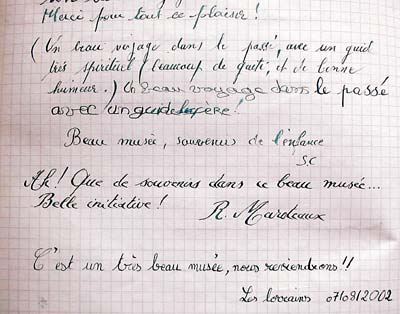 Merci pour tout ce plaisir !
(Un beau voyage dans le passé, avec un guid
très spirituel (beaucoup de gaité, et de bonne
humeur.) Un beau voyage dans le passé
avec un guide
Beau musée, souvenirs de l'enfance
SC
Ah ! Que de souvenirs dans ce beau musée...
Belle initiative ! R. Mardeaux
C'est un très beau musée, nous reviendrons !!
Les lorrains 07/08/2002